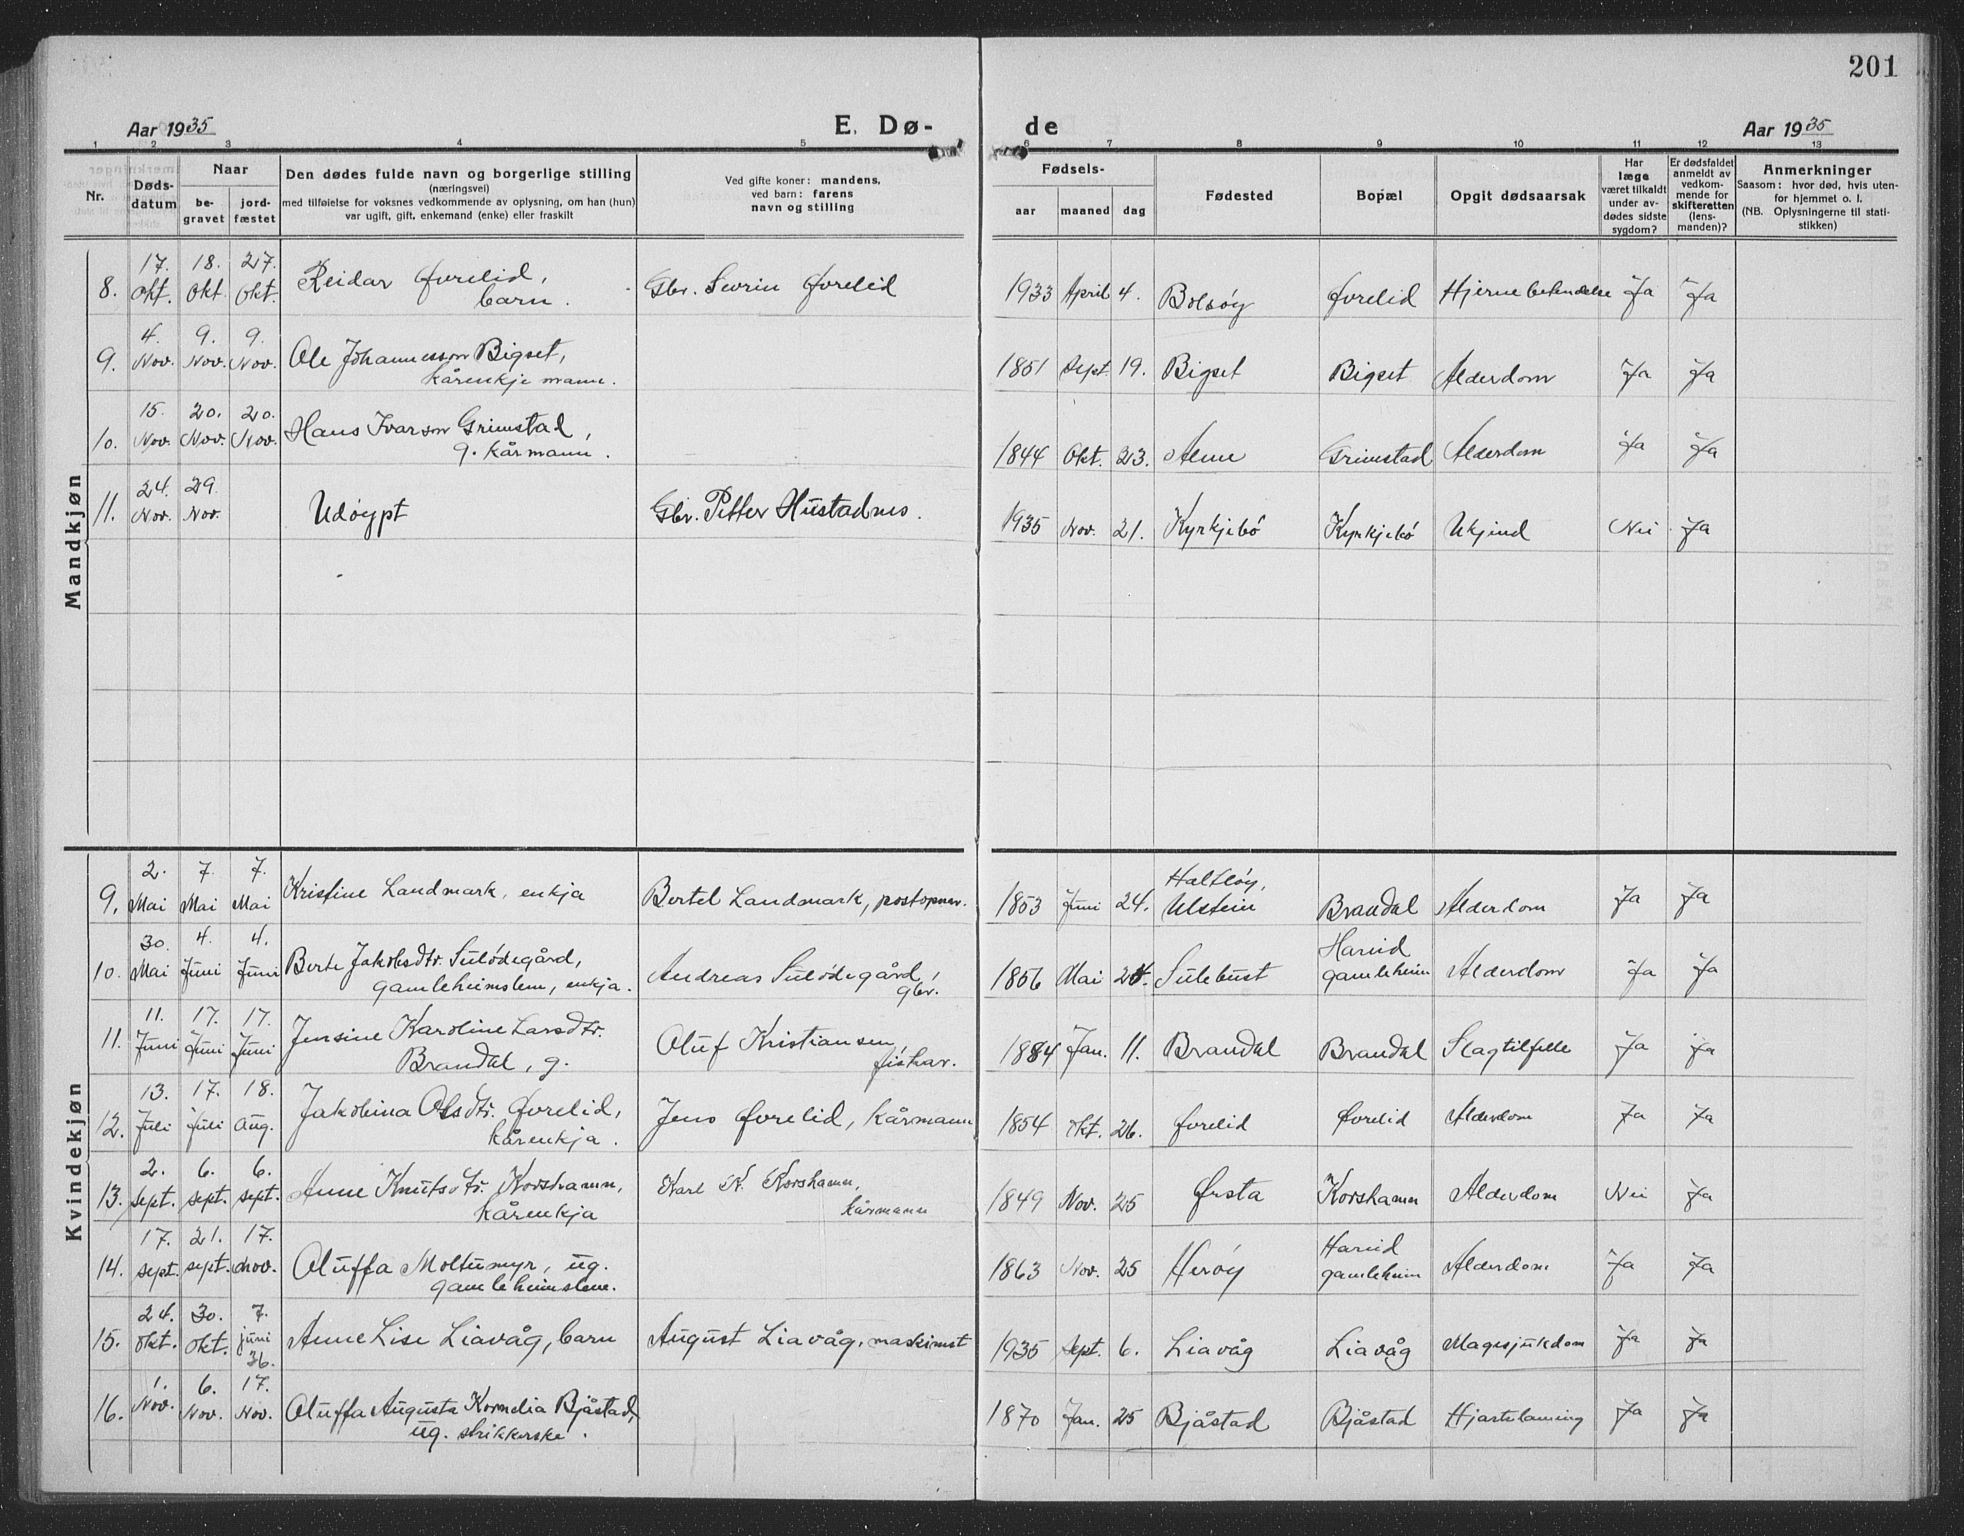 201
Aar 1935 E. Dø- de Aar 1935
1 2 3 4 5 6 7 8 9 10 11 12 13
Nr. Døds-datum Naar be-gravet jord-fæstet Den dødes fulde navn og borgerlige stilling (næringsvei) med tilføielse for voksnes vedkommende av oplysning, om han (hun) var ugift, gift, enkemand (enke) eller fraskilt Ved gifte koner: mandens, ved barn: farens navn og stilling Fødsels- aar maaned dag Fødested Bopæl Opgit dødsaarsak Har læge været tilkaldt under av-dødes sidste sygdom? Er dødsfaldet anmeldt av vedkom-mende for skifteretten (lens-manden)? Anmerkninger Saasom: hvor død, hvis uten-for hjemmet o. l. (NB. Oplysningerne til stati-stikken)
Mandkjøn
8. 17. Okt. 18. Okt. 27. Okt. Reidar Øvrelid, barn. Gbr. Sevrin Øvrelid 1933 April 4. Bolsøy Øvrelid Hjernebetendelse Ja Ja
9. 4. Nov. 9. Nov. 9. Nov. Ole Johannesson Bigset, kårenkjemann. 1851 Sept. 19. Bigset Bigset Alderdom Ja Ja
10. 15. Nov. 20. Nov. 20. Nov. Hans Ivarson Grimstad, g. kårmann. 1844 Okt. 23. Aeim Grimstad Alderdom Ja Ja
11. 24. Nov. 29. Nov. Udøypt Gbr. Petter Hustadnes. 1935 Nov. 21. Kyrkjebö Kyrkjebö Ukjend Nei Ja
Kvindekjøn
9. 2. Mai 7. Mai 7. Mai Kristine Landmark, enkja Bertel Landmark, postopner. 1853 Juni 24. Hatløy, Ulstein Brandal Alderdom Ja Ja
10. 30. Mai 4. Juni 4. Juni Berte Jakobsdtr. Sulödegård, gamleheimslem, enkja. Andreas Sulödegård, gbr. 1856 Mai 24. Sulebust Hareid gamleheim Alderdom Ja Ja
11. 11. Juni 17. Juni 17. Juni Jensine Karoline Larsdtr. Brandal, g. Oluf Kristiansen, fiskar. 1884 Jan. 11. Brandal Brandal Slagtilfelle Ja Ja
12. 13. Juli 17. Juli 18. Aug. Jakobina Olsdtr. Øvrelid, kårenkja. Jens Øvrelid, kårmann 1854 Okt. 26. Øvrelid Øvrelid Alderdom Ja Ja
13. 2. Sept. 6. Sept. 6. Sept. Anne Knutsdtr. Korshamn, kårenkja Karl K. Korshamn, kårmann 1849 Nov. 25 Ørsta Korshamn Alderdom Nei Ja
14. 17. Sept. 21. Sept. 17. Nov. Oluffa Moltumyr, ug. gamleheimslem. 1863 Nov. 25 Herøy Hareid gamleheim Alderdom Ja Ja
15. 24. Okt. 30. Okt. 7. juni 36. Anne Lise Liavåg, barn August Liavåg, maskinist 1935 Sept. 6. Liavåg Liavåg Magesjukdom Ja Ja
16. 1. Nov. 6. Nov. 17. Nov. Oluffa Augusta Kornelia Bjåstad, ug. strikkerske. 1870 Jan. 25 Bjåstad Bjåstad Hjartelaming Ja Ja